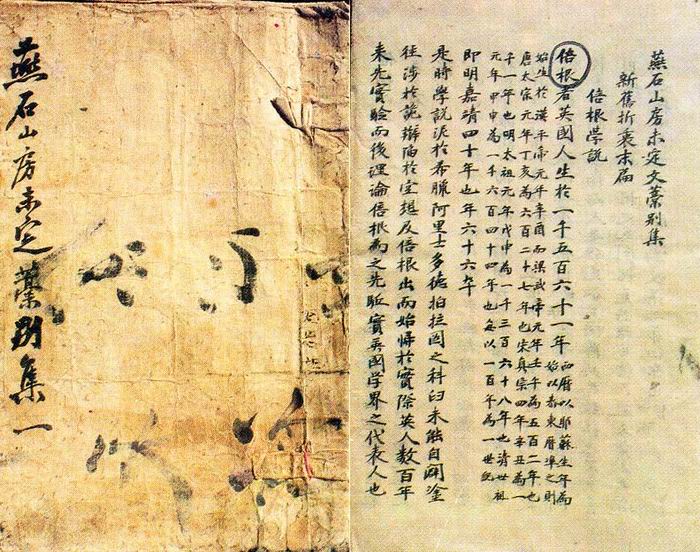 燕石山房未定藁別集一
燕石山房未定文藁別集
新舊折衷末篇
倍根學說
倍根者英國人生於一千五百六十一年
西曆以耶蘇生年為
始以泰東曆準之則
始生於漢平帝元年辛酉而梁武帝元年壬午為五百二年也
唐太宗元年丁亥為六百二十七年也宋真宗四年辛丑為一
千一年也明太祖元年戊申為一千三百六十八年也清世祖
元年甲申為一千六百四十四年也每以一百年為一世紀
即明嘉靖四十年也年六十六卒
是時學說泥於希臘阿里士多德柏拉圖之科臼未能自闢塗
徑涉於詭辯陷於空想及倍根出而始歸於實際英人數百年
來先實驗而後理論倍根為之先實英國學界之代表人也